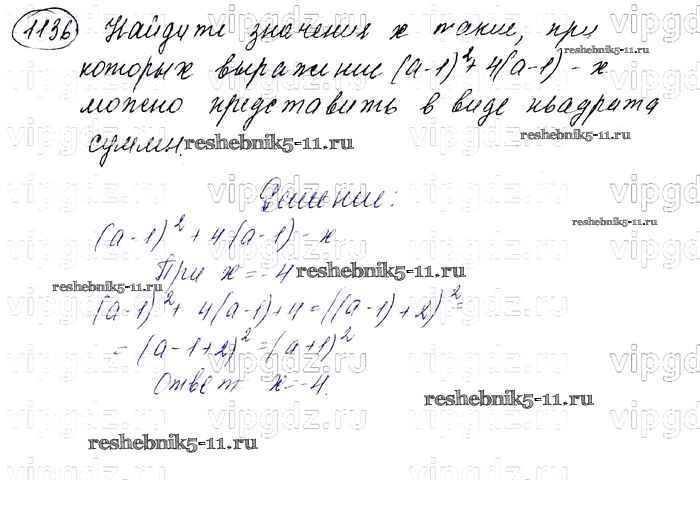 1136 Найдите значения x такие, при
которых выражение (a-1)²+4(a-1)-x
можно представить в виде квадрата
суммы.
Решение:
(a-1)²+4(a-1)-x
При x=-4
(a-1)²+ 4(a-1)+4=((a-1)+2)²=
=(a-1+2)²=(a+1)²
Ответ x=-4.
reshebnik5-11.ru
reshebnik5-11.ru
reshebnik5-11.ru
reshebnik5-11.ru
reshebnik5-11.ru
reshebnik5-11.ru
reshebnik5-11.ru
vipgdz.ru